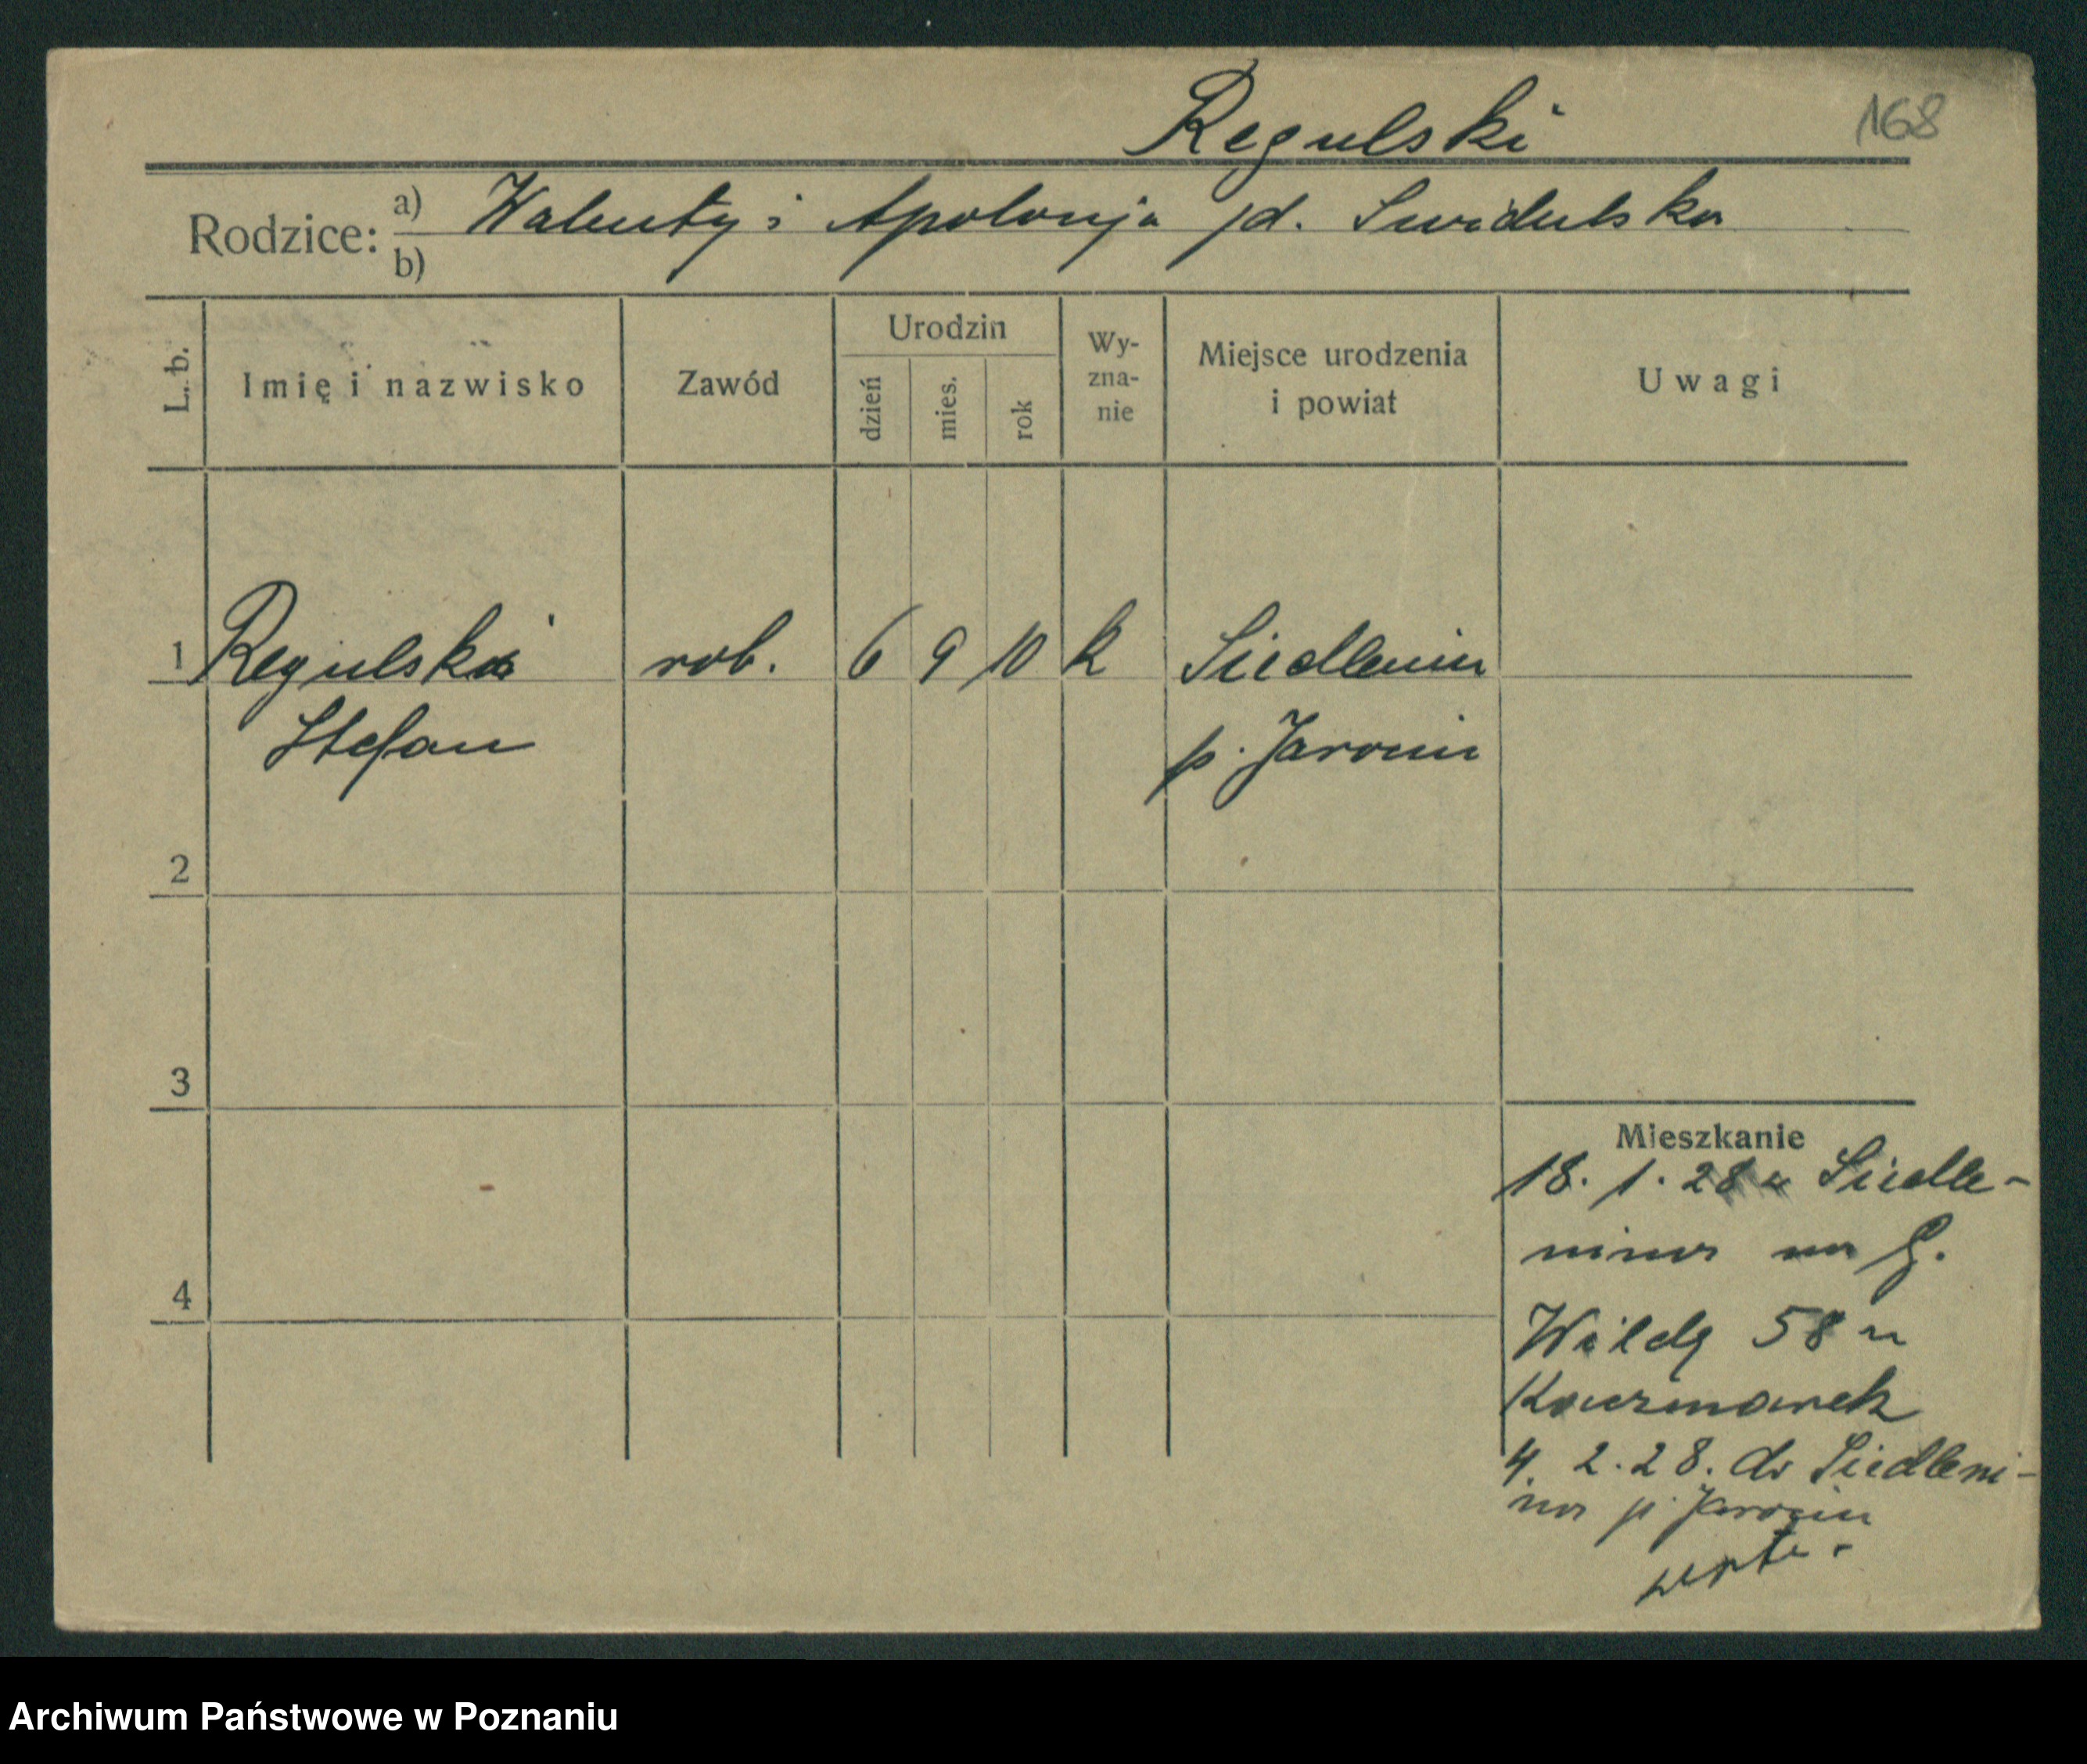 Regulski
168
Rodzice: a) Walenty i Apolonja pd. Swidulska
b)
L. b. Imię i nazwisko Zawód Urodzin dzień mies. rok Wy-zna-nie Miejsce urodzenia i powiat Uwagi
1 Regulski rob. 6 9 10 k Siedlemin
Stefan p. Jarocin
2
3
4
Mieszkanie
18. 1. 28 z Siedle-
mina na G.
Wildę 58 u
Kaczmarek
4. 2. 28. do Siedlemi-
na p. Jarocin
Archiwum Państwowe w Poznaniu